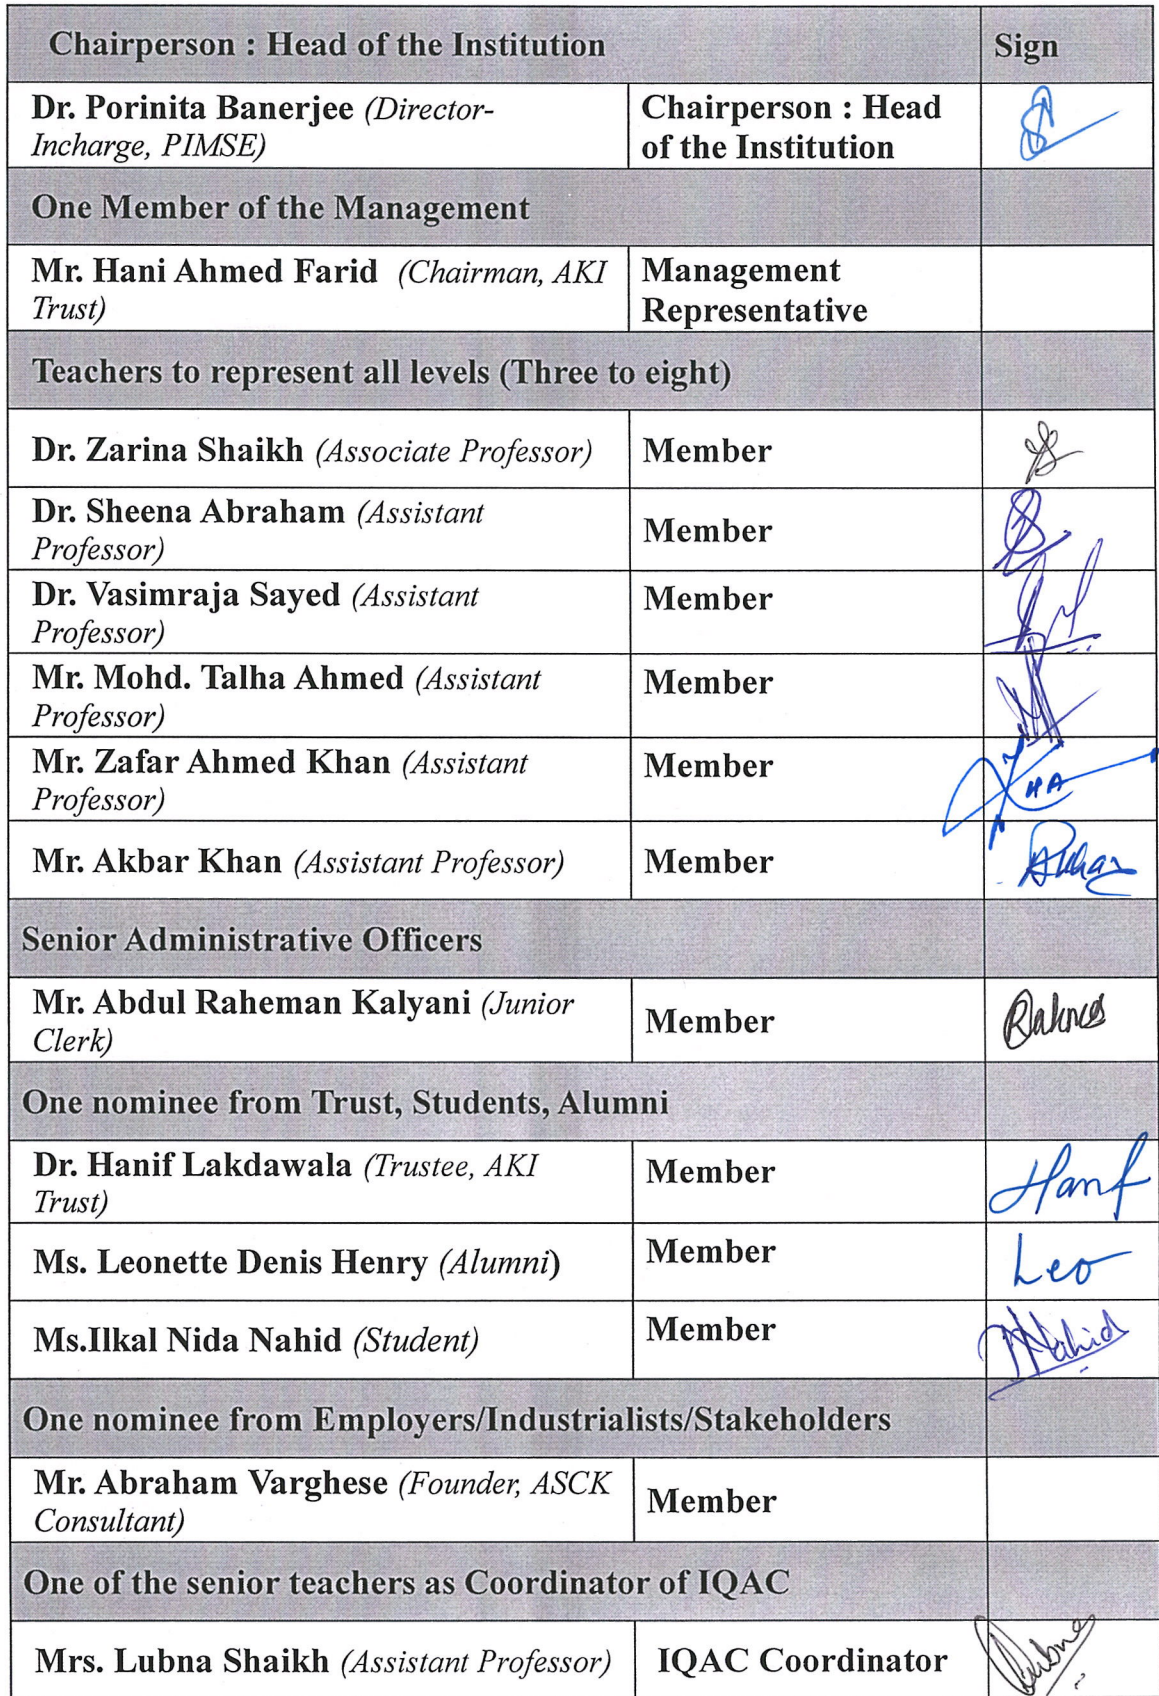 Chairperson : Head of the Institution Sign
Dr. Porinita Banerjee (Director- Chairperson : Head
Incharge, PIMSE) of the Institution
One Member of the Management
Mr. Hani Ahmed Farid (Chairman, AKI Management
Trust) Representative
Teachers to represent all levels (Three to eight)
Dr. Zarina Shaikh (Associate Professor) Member
Dr. Sheena Abraham (Assistant Member
Professor)
Dr. Vasimraja Sayed (Assistant Member
Professor)
Mr. Mohd. Talha Ahmed (Assistant Member
Professor)
Mr. Zafar Ahmed Khan (Assistant Member
Professor)
Mr. Akbar Khan (Assistant Professor) Member
Senior Administrative Officers
Mr. Abdul Raheman Kalyani (Junior Member
Clerk)
One nominee from Trust, Students, Alumni
Dr. Hanif Lakdawala (Trustee, AKI Member Hanf
Trust)
Ms. Leonette Denis Henry (Alumni) Member Leo
Ms.Ilkal Nida Nahid (Student) Member Nahid
One nominee from Employers/Industrialists/Stakeholders
Mr. Abraham Varghese (Founder, ASCK Member
Consultant)
One of the senior teachers as Coordinator of IQAC
Mrs. Lubna Shaikh (Assistant Professor) IQAC Coordinator Lubna